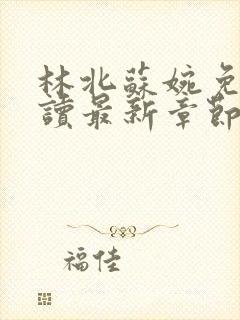 林北蘇婉免
讀最新章節
福佳